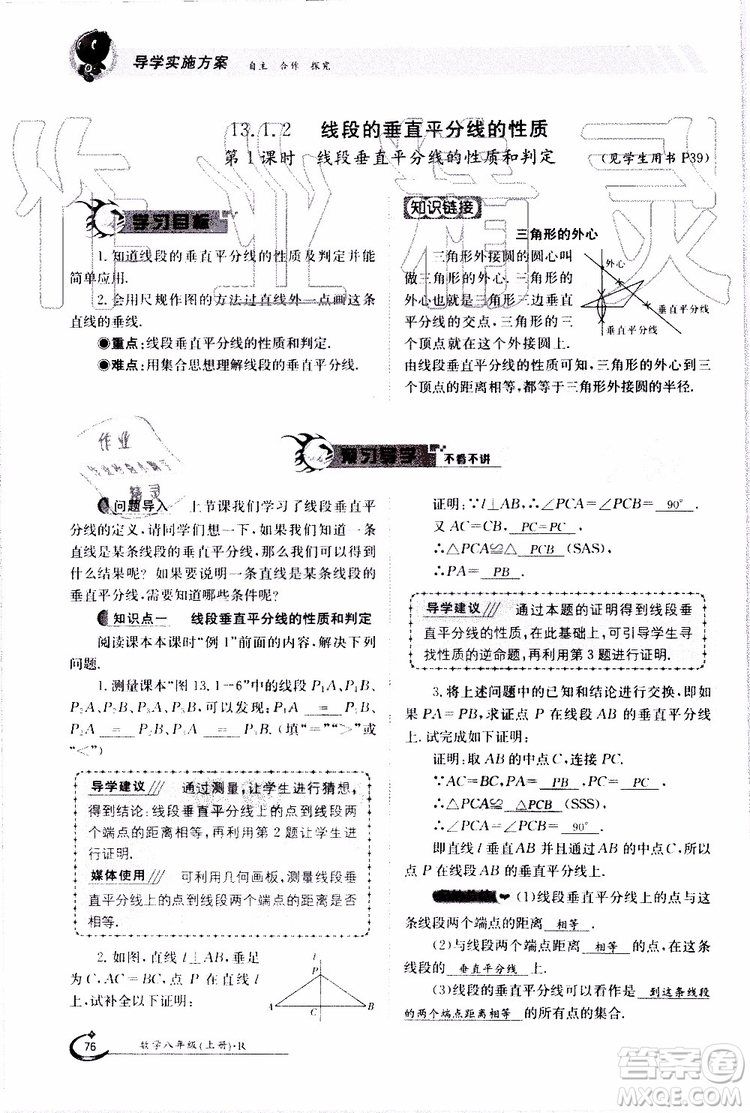 导学实施方案 自主 合作 探究
13.1.2 线段的垂直平分线的性质
第1课时 线段垂直平分线的性质和判定 (见学生用书 P39)
学习目标
1. 知道线段的垂直平分线的性质及判定并能
简单应用.
2. 会用尺规作图的方法过直线外一点画这条
直线的垂线.
●重点:线段垂直平分线的性质和判定.
●难点:用集合思想理解线段的垂直平分线.
知识链接
三角形的外心
三角形外接圆的圆心叫
做三角形的外心. 三角形的外
心也就是三角形三边垂直
平分线的交点,三角形的三
个顶点就在这个外接圆上.
由线段的垂直平分线的性质可知,三角形的外心到三
个顶点的距离相等,都等于三角形外接圆的半径.
外心
垂直平分线
垂直平分线
预习导学 不看不讲
问题导入 上节课我们学习了线段垂直平
分线的定义,请同学们想一下,如果我们知道一条
直线是某条线段的垂直平分线,那么我们可以得到
什么结果呢?如果要说明一条直线是某线段的垂直
平分线,需要知道哪些条件呢?
知识点一 线段垂直平分线的性质和判定
阅读课本本课时“例1”前面的内容,解决下列
问题.
1. 测量课本“图 13.1-6”中的线段 P₁A、P₁B、
P₂A、P₂B、P₃A、P₃B 的长度,可以发现:P₁A = P₁B,
P₂A = P₂B,P₃A = P₃B.(填“=”“>”或
“<”)
导学建议 通过测量,让学生进行猜想,
得到结论:线段垂直平分线上的点到线段两
个端点的距离相等,再利用第 2 题让学生进
行证明.
媒体使用 可利用几何画板,测量线段垂
直平分线上任意一点到线段两个端点的距离
是否相等.
2. 如图,直线 l⊥AB,垂足
为 C,AC=BC,点 P 在直线 l
上,试补全以下证明:
l
P
A C B
证明:∵l⊥AB,∴∠PCA=∠PCB= 90° .
又 AC=CB,PC= PC ,
∴△PCA≌△ PCB (SAS),
∴PA= PB .
导学建议 通过本题的证明得到线段垂
直平分线的性质,在此基础上,可引导学生寻
找性质的逆命题,再利用第 3 题进行证明.
3. 将上述问题中的已知和结论进行交换,即如
果 PA=PB,求证点 P 在线段 AB 的垂直平分线
上. 试完成如下证明:
证明:取 AB 的中点 C,连接 PC.
∵AC=BC,PA= PB ,PC= PC ,
∴△PCA≌△PCB(SSS),
∴∠PCA=∠ PCB = 90° .
即直线 PC 垂直 AB 并且通过 AB 的中点 C,所以
点 P 在线段 AB 的垂直平分线上.
(1)线段垂直平分线上的点与这
条线段两个端点的距离 相等 .
(2)与线段两个端点距离相等的点,在这条线
段的 垂直平分线 上.
(3)线段的垂直平分线可以看作是 到这条线段
的两个端点距离相等 的所有点的集合.
76 数学八年级(上册)·R
作业精灵
作业
精灵
答案圈
MXQE.COM